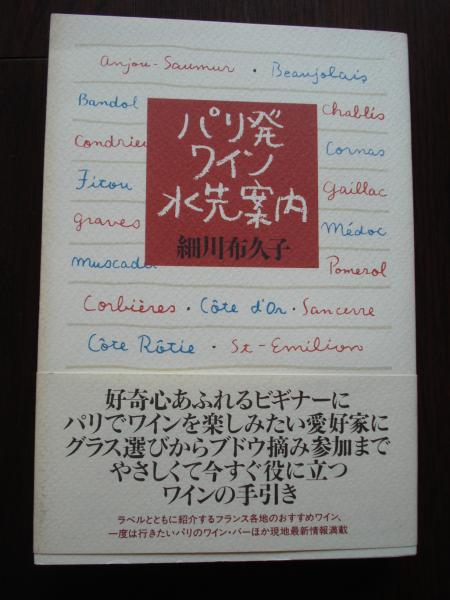 Anjou-Saumur · Beaujolais
Bandol
Chablis
Condrieu
Cornas
Fitou
Gaillac
Graves
Médoc
Muscadet
Pomerol
パリ発
ワイン
水先案内
細川布久子
Corbières · Côte d'Or · Sancerre
Côte Rôtie · St-Emilion
好奇心あふれるビギナーに
パリでワインを楽しみたい愛好家に
グラス選びからブドウ摘み参加まで
やさしくて今すぐ役に立つ
ワインの手引き
ラベルとともに紹介するフランス各地のおすすめワイン、
一度は行きたいパリのワイン・バーほか現地最新情報満載